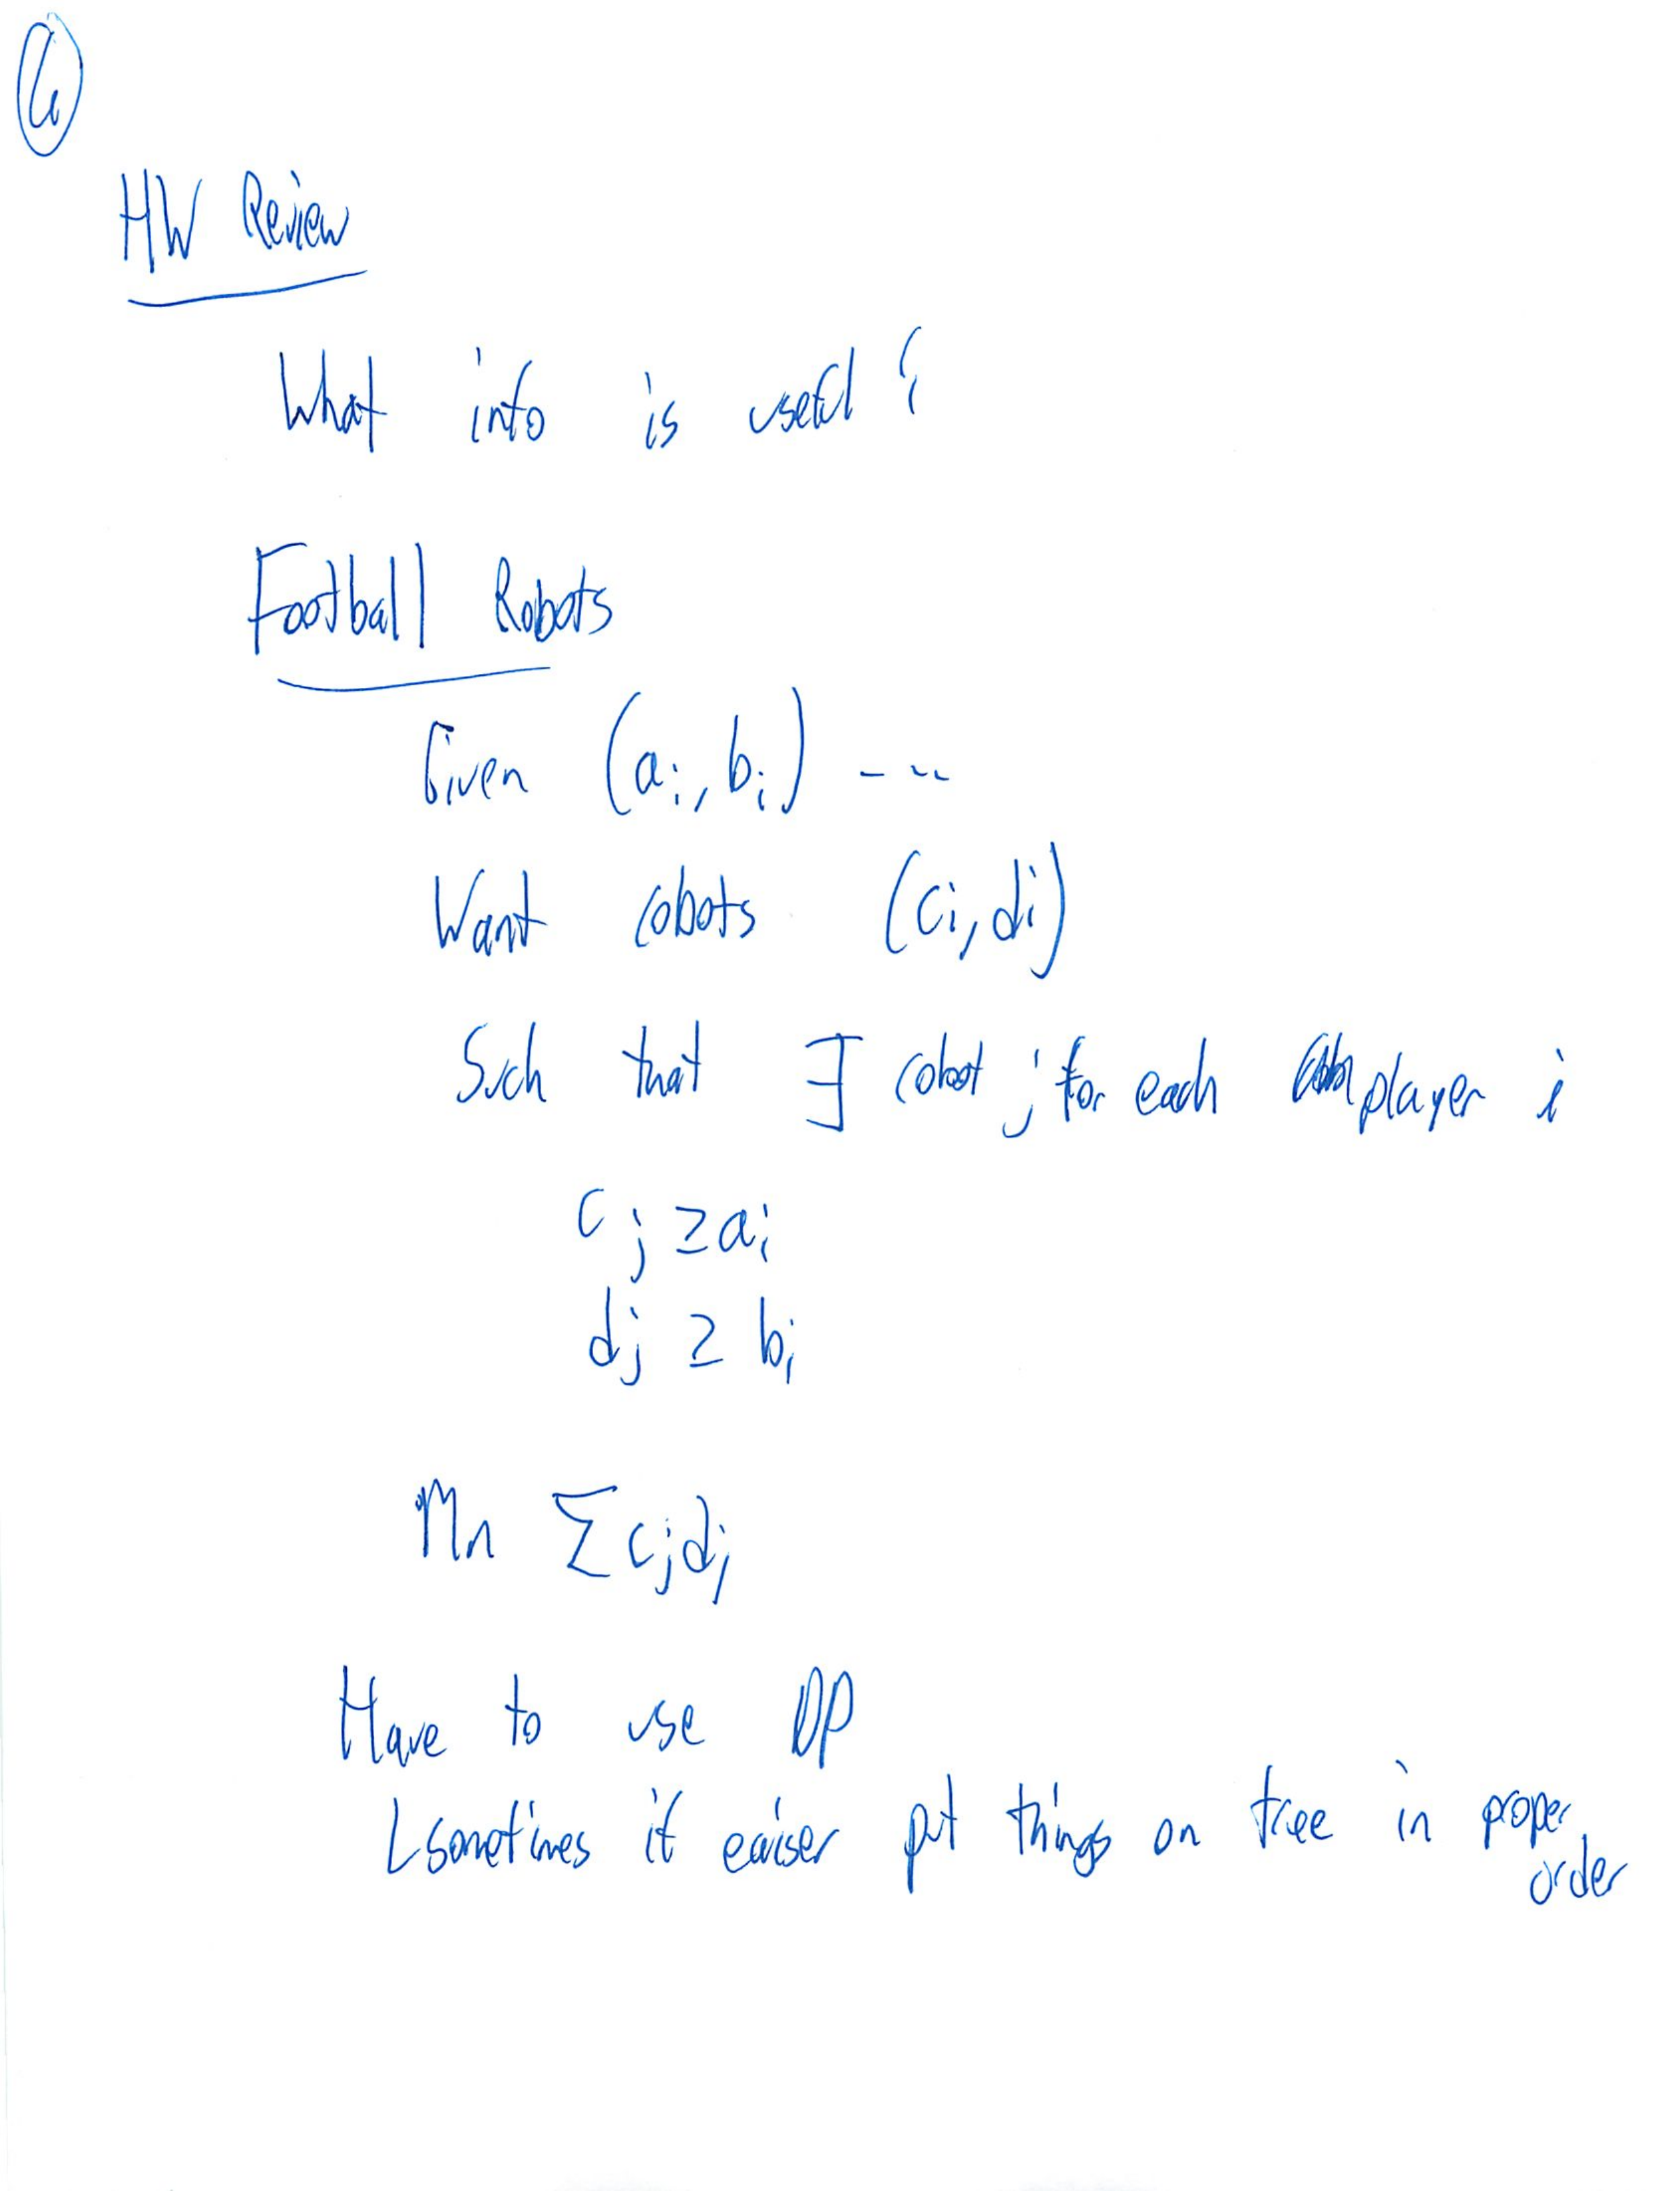 HW Review
What info is useful ?
Football Robots
Given (ai, bi) ---
Want robots (ci, di)
Such that ∃ robot j for each player i
cj ≥ ai
dj ≥ bi
Min Σ cjdj
Have to use DP
Lsometimes if easier put things on tree in proper
order